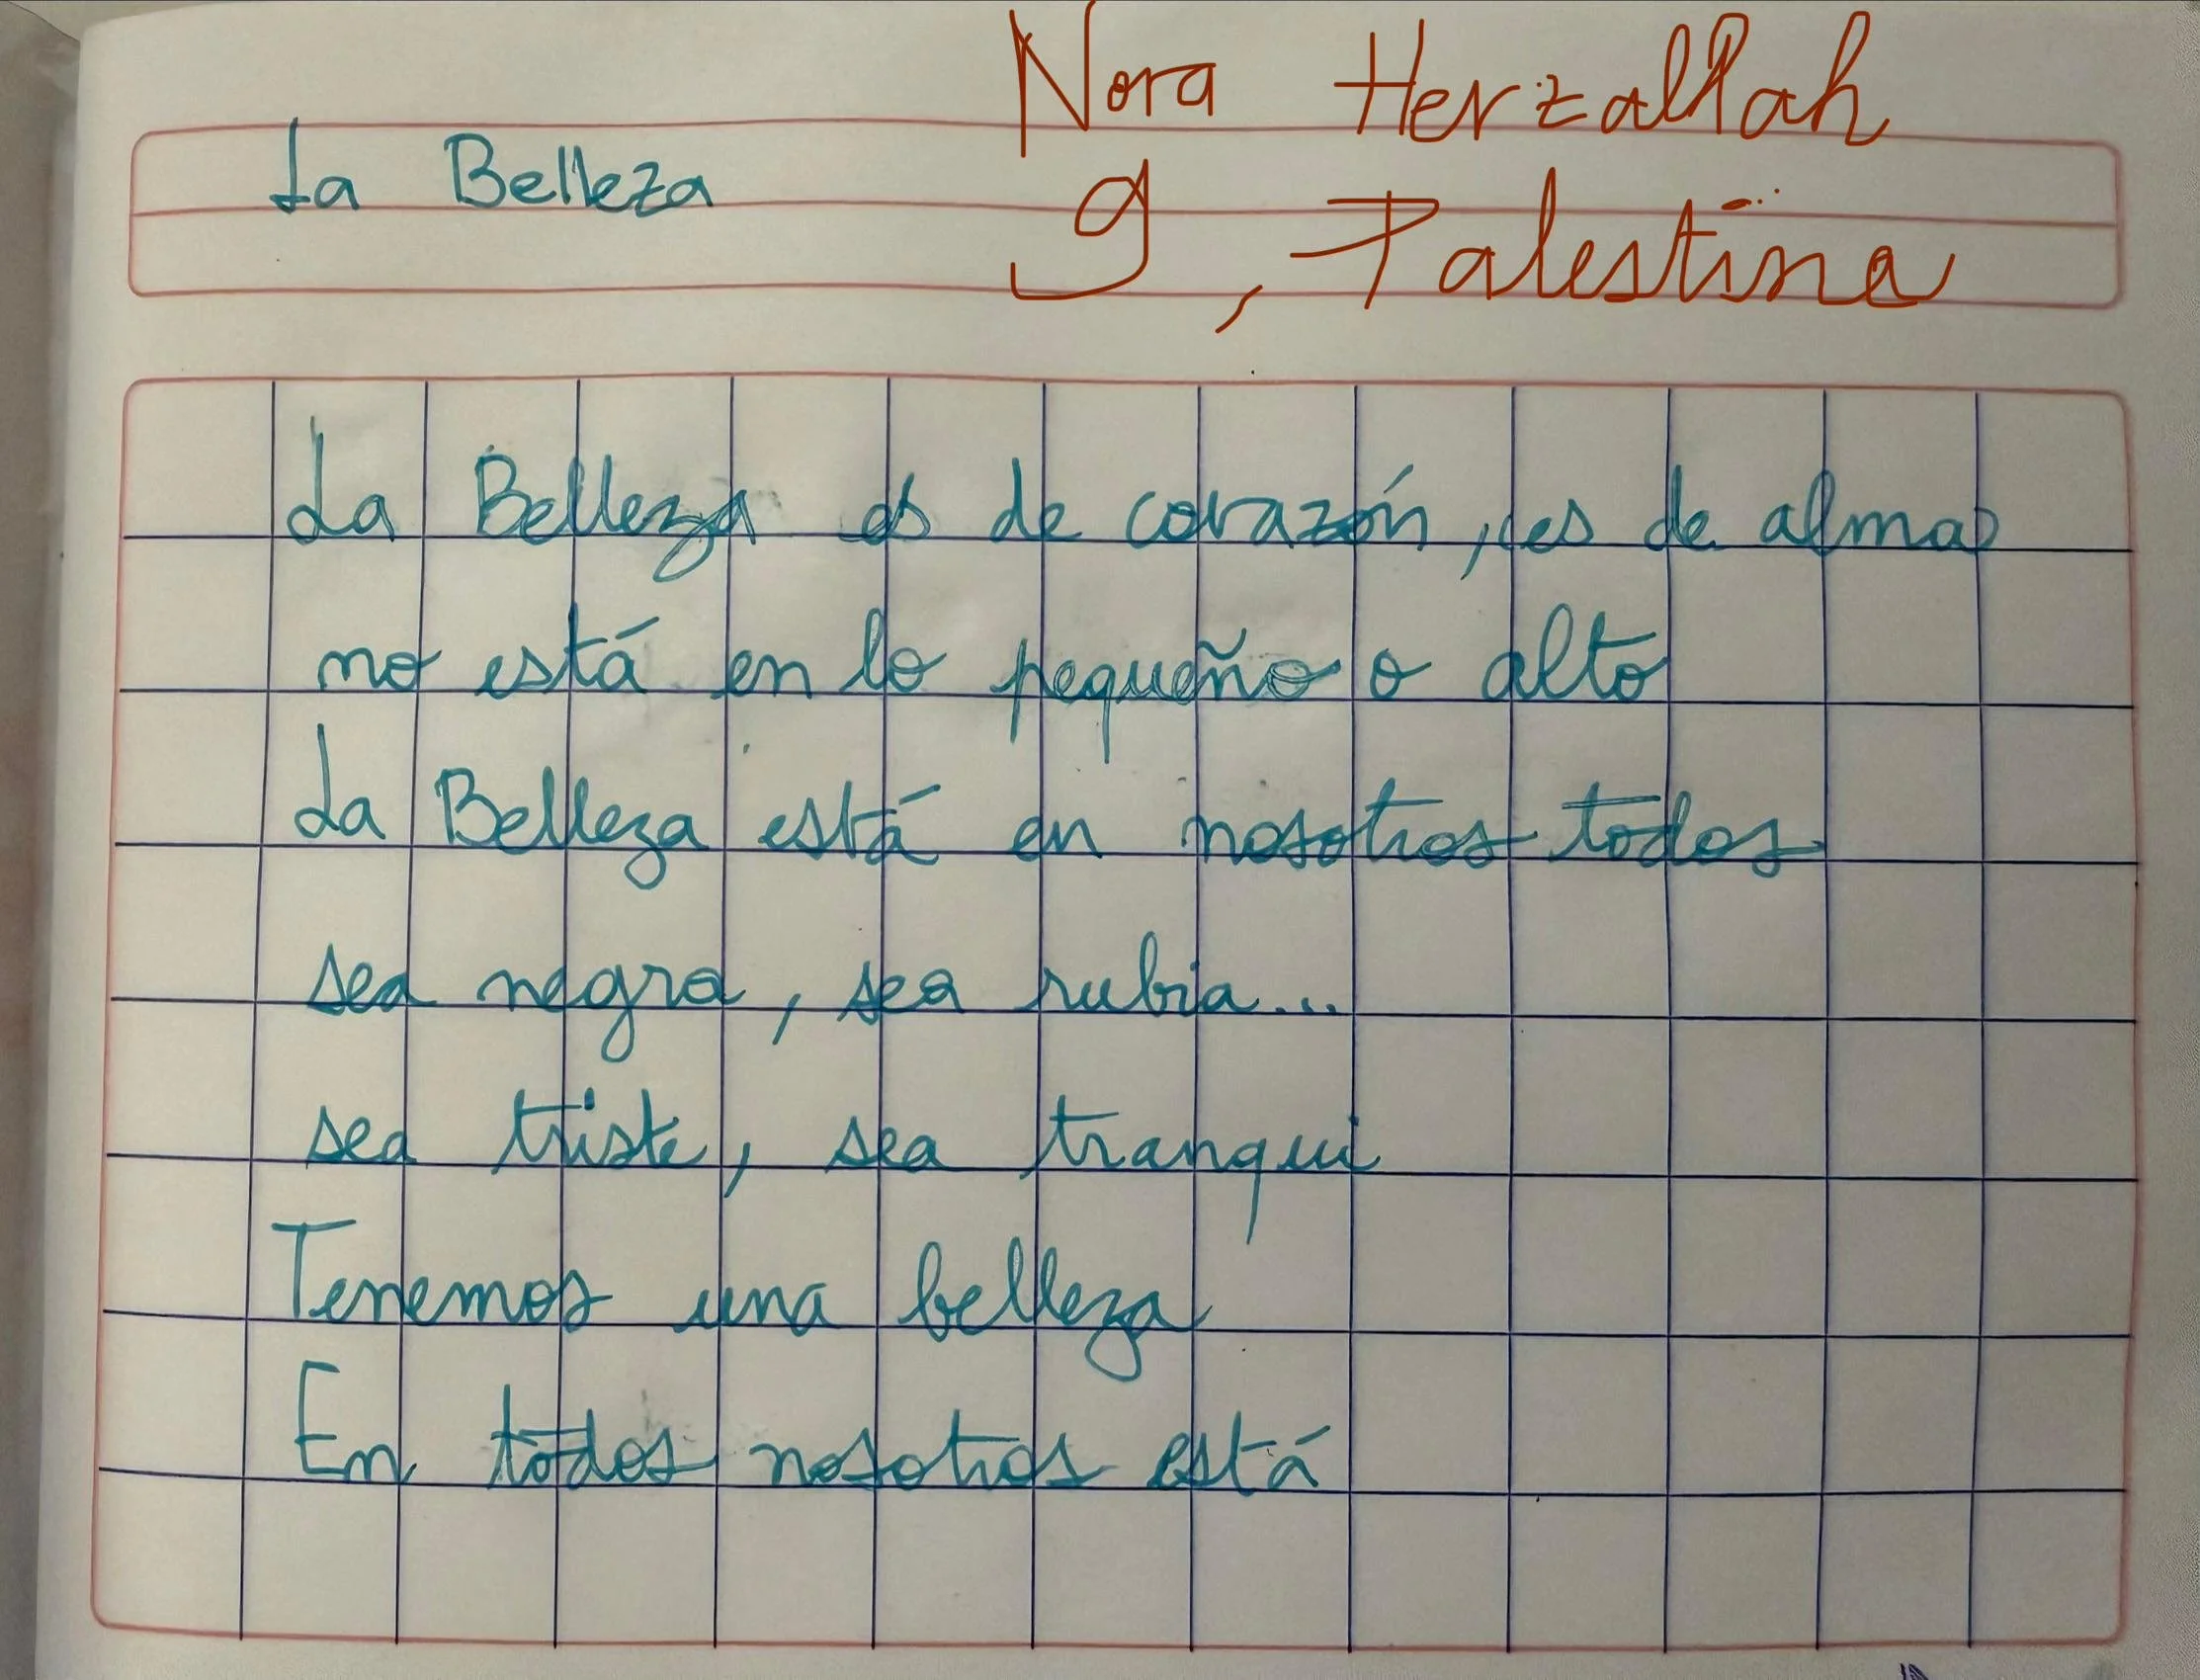 Nora Herzallah
La Belleza
9, Palestina
La Belleza es de corazón, es de alma
no está en lo pequeño o alto
La Belleza está en nosotros todos
sea negra, sea rubia...
sea triste, sea tranqui
Tenemos una belleza
En todos nosotros está